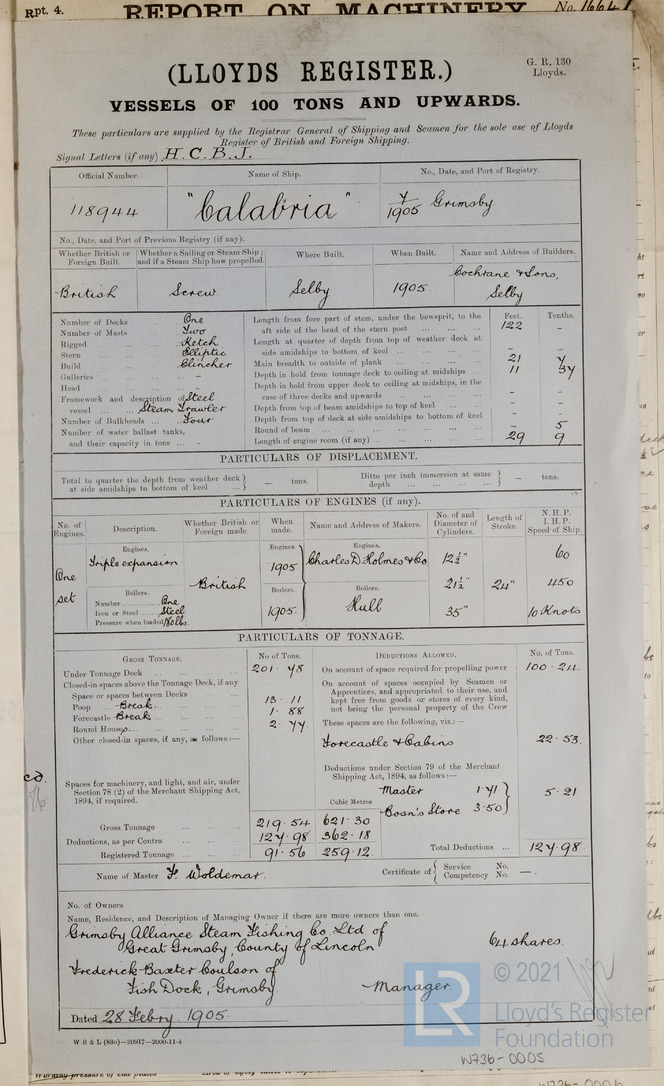 Rpt. 4. REPORT ON MACHINERY No. 16641
(LLOYDS REGISTER.)
G. R. 130
Lloyds.
VESSELS OF 100 TONS AND UPWARDS.
These particulars are supplied by the Registrar General of Shipping and Seamen for the sole use of Lloyds
Register of British and Foreign Shipping.
Signal Letters (if any) H.C.B.J.
Official Number. Name of Ship. No., Date, and Port of Registry.
118944 "Calabria" 7/1905 Grimsby
No., Date, and Port of Previous Registry (if any).
Whether British or Foreign Built. Whether a Sailing or Steam Ship; and if a Steam Ship how propelled. Where Built. When Built. Name and Address of Builders.
British Screw Selby 1905 Cochrane & Sons,
Selby
Feet. Tenths.
Number of Decks ... One
Number of Masts ... Two
Rigged ... Ketch
Stern ... Elliptic
Build ... Clincher
Galleries ... -
Head ... -
Framework and description of Steel
vessel ... Steam Trawler
Number of Bulkheads ... Four
Number of water ballast tanks,
and their capacity in tons ... -
Length from fore part of stem, under the bowsprit, to the
aft side of the head of the stern post ... 122 -
Length at quarter of depth from top of weather deck at
side amidships to bottom of keel ... - -
Main breadth to outside of plank ... 21 7
Depth in hold from tonnage deck to ceiling at midships ... 11 37
Depth in hold from upper deck to ceiling at midships, in the
case of three decks and upwards ... - -
Depth from top of beam amidships to top of keel ... - -
Depth from top of deck at side amidships to bottom of keel - -
Round of beam ... - 5
Length of engine room (if any) ... 29 9
PARTICULARS OF DISPLACEMENT.
Total to quarter the depth from weather deck
at side amidships to bottom of keel ... - tons.
Ditto per inch immersion at same
depth ... - tons.
PARTICULARS OF ENGINES (if any).
No. of Engines. Description. Whether British or Foreign made. When made. Name and Address of Makers. No. of and Diameter of Cylinders. Length of Stroke. N. H. P. I. H. P. Speed of Ship.
Engines. Engines. Engines.
Triple expansion 1905 Charles D. Holmes & Co 12½" 60
One British 21½" 24" 450
set Boilers. Boilers. Boilers.
Number One
Iron or Steel Steel 1905 Hull 35" 10 Knots
Pressure when loaded 180 lbs.
PARTICULARS OF TONNAGE.
GROSS TONNAGE. No of Tons. DEDUCTIONS ALLOWED. No. of Tons.
Under Tonnage Deck ... 201.78
Closed-in spaces above the Tonnage Deck, if any
Space or spaces between Decks ...
Poop Break 13.11
Forecastle Break 1.88
Round Houses 2.77
Other closed-in spaces, if any, as follows:—
Spaces for machinery, and light, and air, under
Section 78 (2) of the Merchant Shipping Act,
1894, if required.
Cubic Metres
Gross Tonnage ... 219.54 621.30
Deductions, as per Contra ... 127.98 362.18
Registered Tonnage ... 91.56 259.12
On account of space required for propelling power 100.24
On account of spaces occupied by Seamen or
Apprentices, and appropriated to their use, and
kept free from goods or stores of every kind,
not being the personal property of the Crew
These spaces are the following, viz.:—
Forecastle & Cabins 22.53
Deductions under Section 79 of the Merchant
Shipping Act, 1894, as follows:—
Master 1.71
Boan's Store 3.50 5.21
Total Deductions ... 127.98
Name of Master F. Woldemar.
Certificate of Service No.
Competency No. —
No. of Owners
Name, Residence, and Description of Managing Owner if there are more owners than one.
Grimsby Alliance Steam Fishing Co. Ltd of
Great Grimsby, County of Lincoln 64 shares.
Frederick Baxter Coulson of
Fish Dock, Grimsby Manager.
Dated 28 Febry. 1905.
W B & L (83o)—20917—2000-11-4
LR
© 2021
Lloyd's Register
Foundation
W736-0005